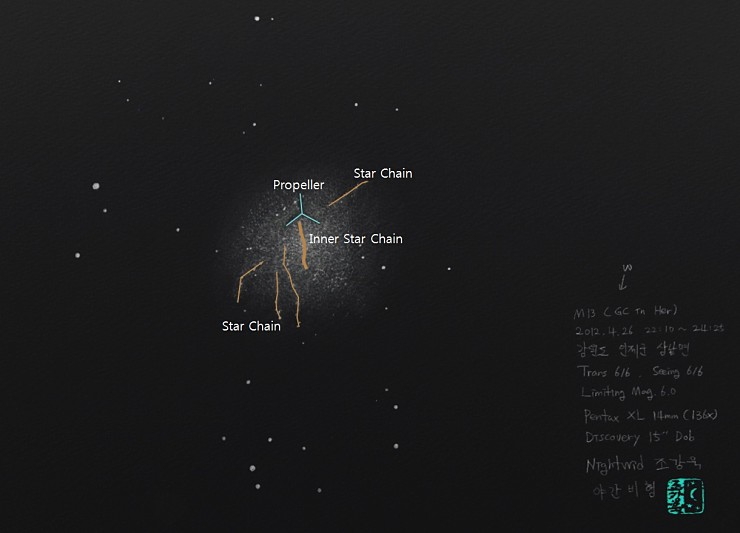 Propeller
Star Chain
Inner Star Chain
Star Chain
W
M13 (GC in Her)
2012.4.26 22:10 ~ 24:25
강원도 인제군 상남면
Trans 6/6 . Seeing 6/6
Limiting Mag. 6.0
Pentax XL 14mm (136x)
Discovery 15" Dob
Nightwid 조강욱
야간비행